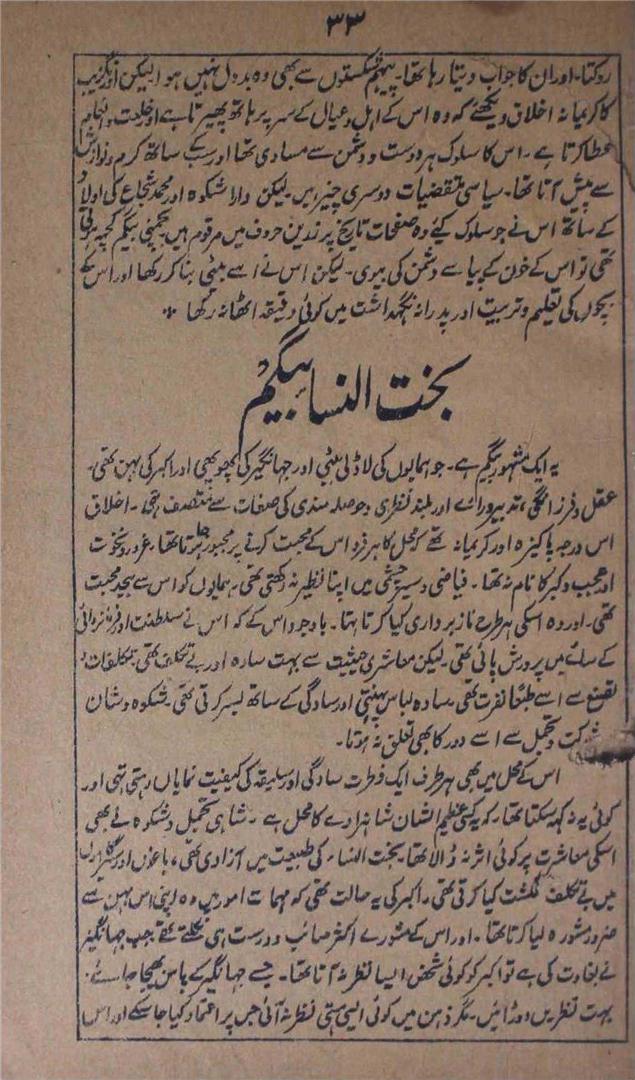 ۳۳
روکتا۔ اور ان کا جواب دیتا رہا تھا۔ پیہم شکستوں سے بھی وہ بددل نہیں ہوا لیکن اورنگزیب
کا کریمانہ اخلاق دیکھئے کہ وہ اس کے اہل و عیال کے سر پر ہاتھ پھیرتا ہے اور خلعت و انعام
عطا کرتا ہے۔ اس کا سلوک ہر دوست و دشمن سے مساوی تھا اور سب کے ساتھ کرم و نوازش
سے پیش آتا تھا۔ سیاسی مقتضیات دوسری چیز ہیں۔ لیکن دارا شکوہ اور محمد شجاع کی اولاد
کے ساتھ اس نے جو سلوک کئے وہ صفحات تاریخ پر زریں حروف میں مرقوم ہیں بیگم کچھ ہوتی
تھی تو اس کے خون کے پیاسے دشمن کی بیوی۔ لیکن اس نے اسے بیٹی بنا کر رکھا اور اس کے
بچوں کی تعلیم و تربیت اور پدرانہ نگہداشت میں کوئی دقیقہ اٹھا نہ رکھا
بخت النسا بیگم
یہ ایک مشہور بیگم ہے۔ جو ہمایوں کی لاڈلی بیٹی اور جہانگیر کی پھوپھی اور اکبر کی بہن تھی۔
عقل و فرزانگی، تدبیر و رائے اور بلند نظری و حوصلہ مندی کی صفات سے متصف تھی۔ اخلاق
اس درجہ پاکیزہ اور کریمانہ تھے کہ محل کا ہر فرد اس کے محبت کرنے پر مجبور ہو جاتا تھا۔ غرور و نخوت
اور عجب و کبر کا نام نہ تھا۔ فیاضی و سیر چشمی میں اپنا نظیر نہ رکھتی تھی۔ ہمایوں کو اس سے بیحد محبت
تھی۔ اور وہ اسکی ہر طرح ناز برداری کیا کرتا تھا۔ باوجود اس کے کہ اس نے سلطنت اور فرمانروائی
کے سائے میں پرورش پائی تھی۔ لیکن معاشرتی حیثیت سے بہت سادہ اور بے تکلف تھی تکلفات و
تصنع سے اسے طبعاً نفرت تھی۔ سادہ لباس پہنتی اور سادگی کے ساتھ بسر کرتی تھی۔ شکوہ و شان
شوکت و تجمل سے اسے دور کا بھی تعلق نہ ہوتا۔
اس کے محل میں بھی ہر طرف ایک فطرت سادگی اور سلیقہ کی کیفیت نمایاں رہتی تھی اور
کوئی یہ نہ کہہ سکتا تھا۔ کہ یہ کسی عظیم الشان شاہزادے کا محل ہے۔ شاہی تجمل و شکوہ نے بھی
اسکی معاشرت پر کوئی اثر نہ ڈالا تھا۔ بخت النساء کی طبیعت میں آزادی تھی، باغوں اور گلزاروں
میں بے تکلف گلگشت کیا کرتی تھی۔ اکبر کی یہ حالت تھی کہ مہمات امور میں وہ اپنی اس بہن سے
ضرور مشورہ لیا کرتا تھا۔ اور اس کے مشورے اکثر صائب و درست ہی نکلتے تھے جب جہانگیر
نے بغاوت کی ہے تو اکبر کو کوئی شخص ایسا نظر نہ آتا تھا۔ جسے جہانگیر کے پاس بھیجا جائے۔
بہت نظریں دوڑائیں۔ مگر ذہن میں کوئی ایسی ہستی نظر نہ آئی جس پر اعتماد کیا جا سکے اور اس